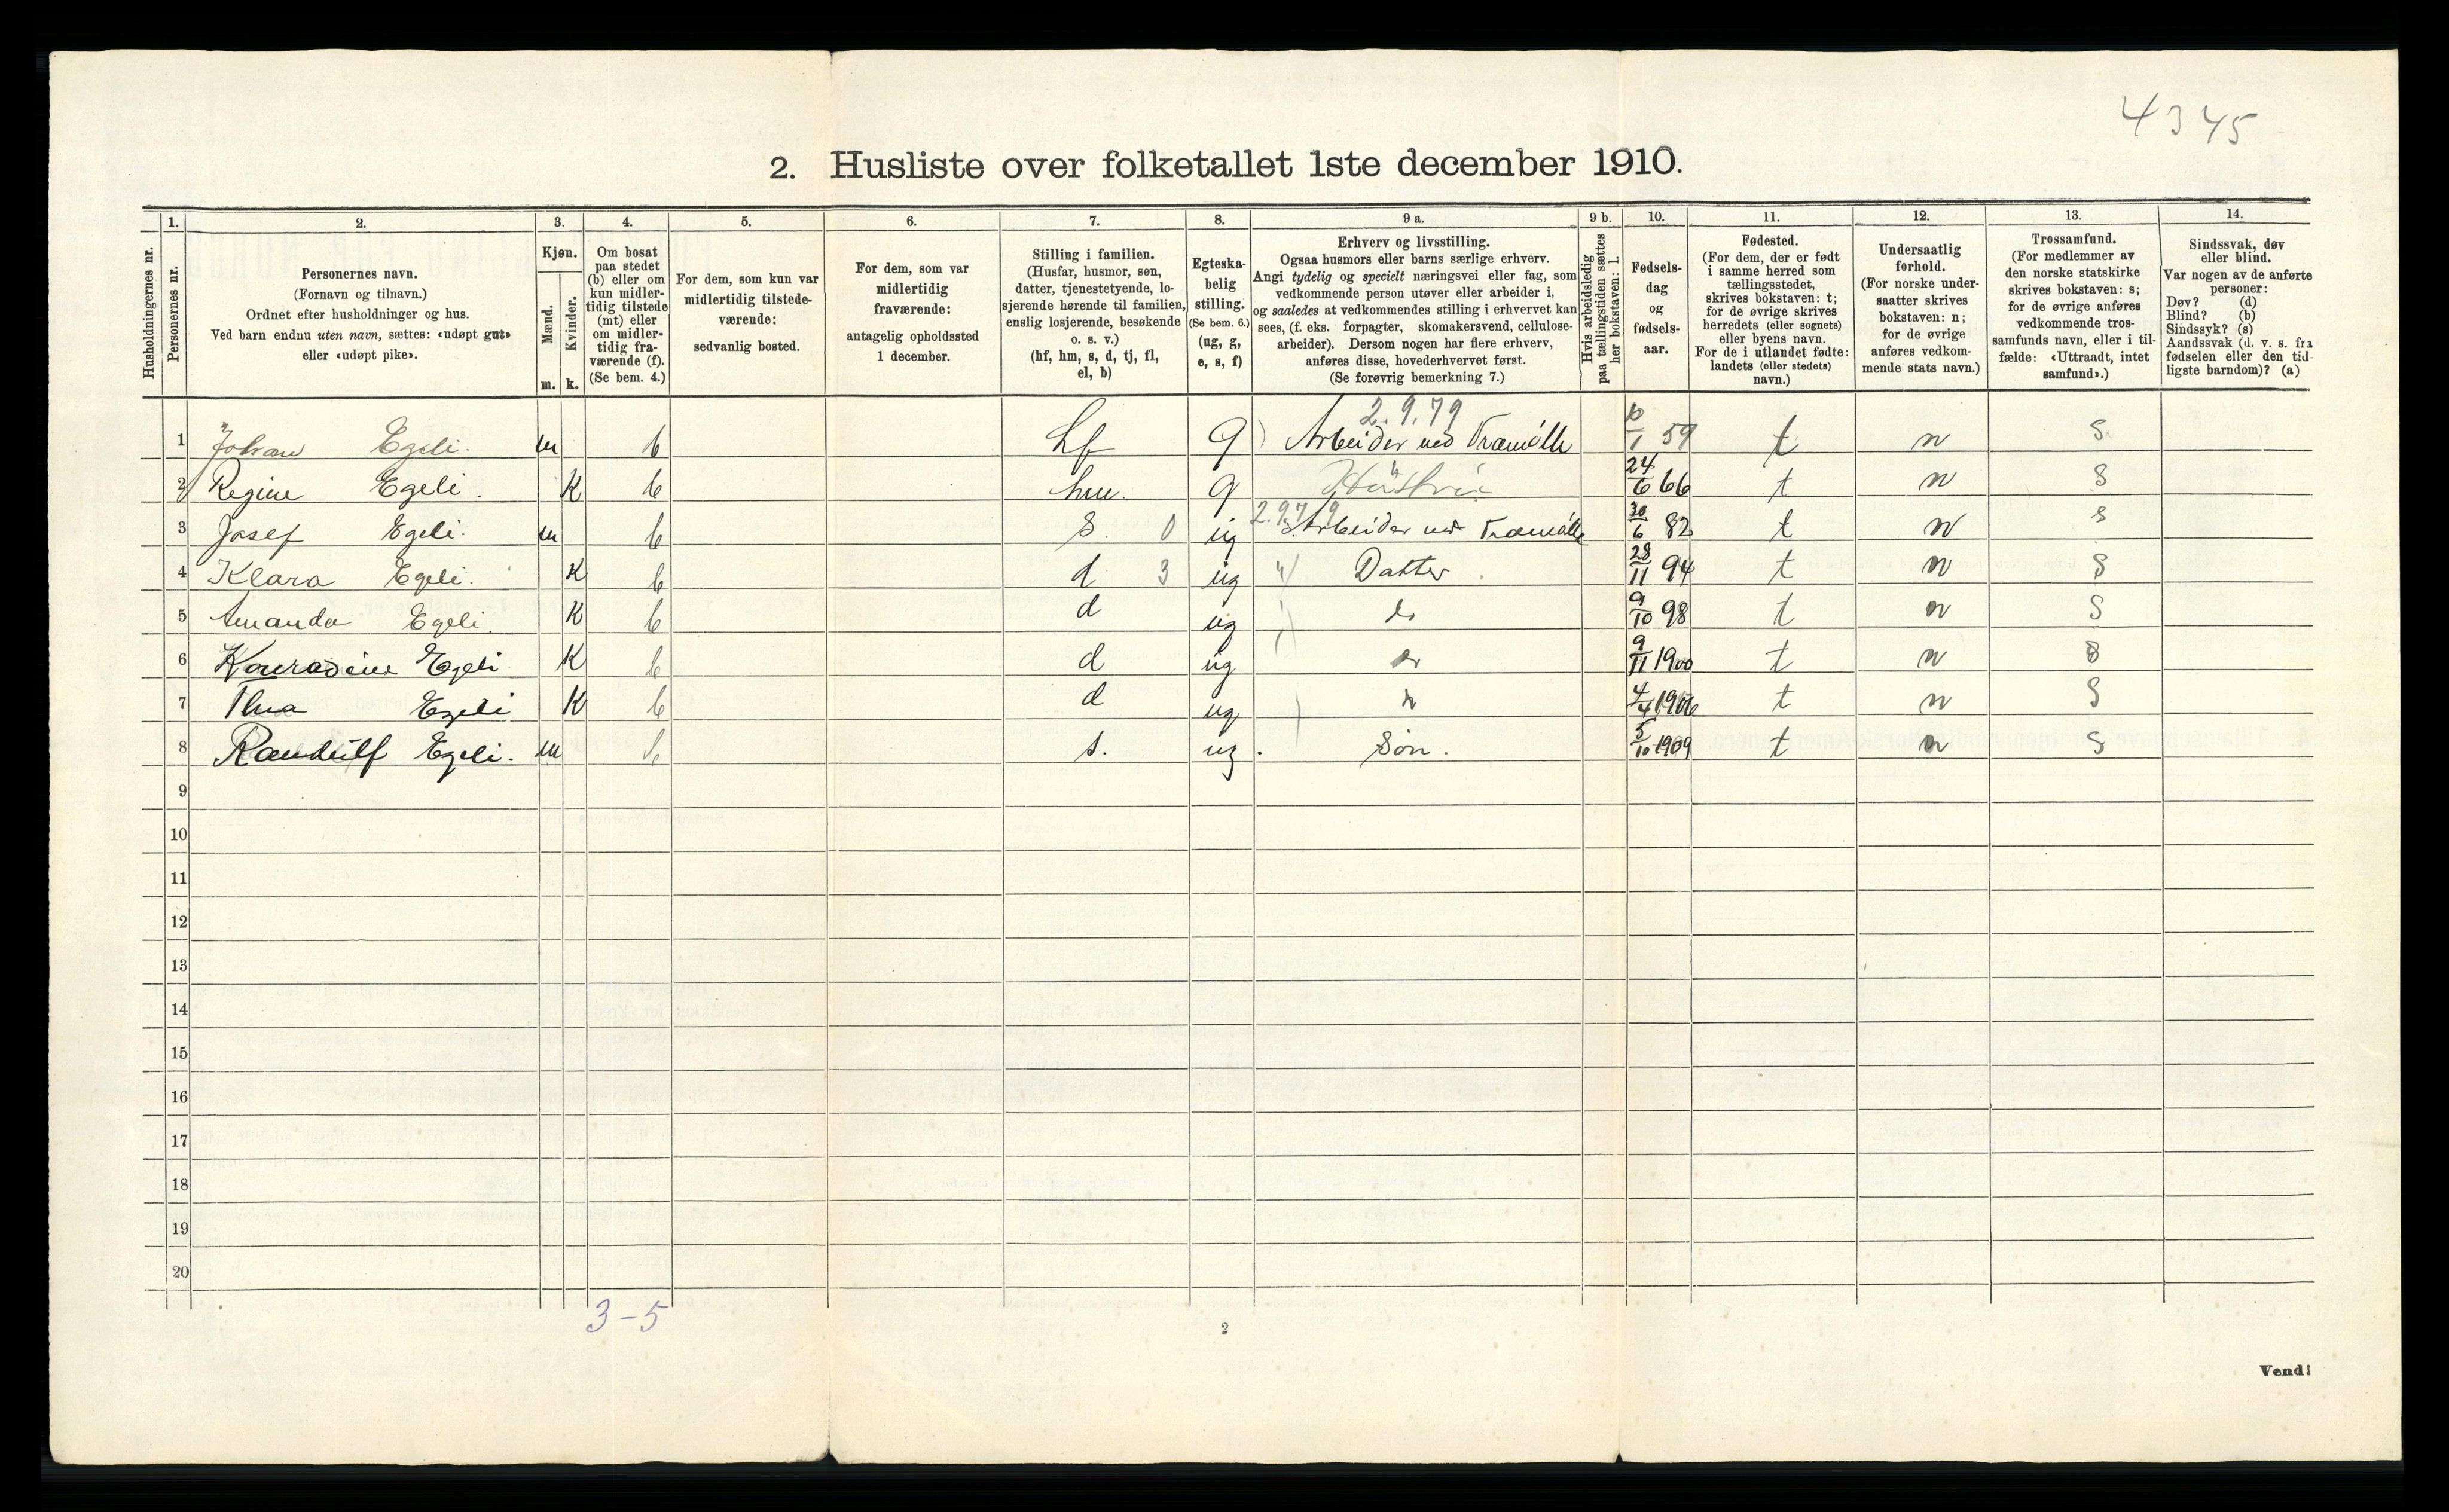 4345
2. Husliste over folketallet 1ste december 1910.
Husholdningernes nr.
1. Personernes nr.
2. Personernes navn.
(Fornavn og tilnavn.)
Ordnet efter husholdninger og hus.
Ved barn endnu uten navn, sættes: «udøpt gut»
eller «udøpt pike».
3. Kjøn.
Mænd. m.
Kvinder. k.
4. Om bosat
paa stedet
(b) eller om
kun midler-
tidig tilstede
(mt) eller
om midler-
tidig fra-
værende (f).
(Se bem. 4.)
5. For dem, som kun var
midlertidig tilstede-
værende:
sedvanlig bosted.
6. For dem, som var
midlertidig
fraværende:
antagelig opholdssted
1 december.
7. Stilling i familien.
(Husfar, husmor, søn,
datter, tjenestetyende, lo-
sjerende hørende til familien,
enslig losjerende, besøkende
o. s. v.)
(hf, hm, s, d, tj, fl,
el, b)
8. Egteska-
belig
stilling.
(Se bem. 6.)
(ug, g,
e, s, f)
9 a. Erhverv og livsstilling.
Ogsaa husmors eller barns særlige erhverv.
Angi tydelig og specielt næringsvei eller fag, som
vedkommende person utøver eller arbeider i,
og saaledes at vedkommendes stilling i erhvervet kan
sees, (f. eks. forpagter, skomakersvend, cellulose-
arbeider). Dersom nogen har flere erhverv,
anføres disse, hovederhvervet først.
(Se forøvrig bemerkning 7.)
9 b. Hvis arbeidsledig
paa tællingstiden sættes
her bokstaven: l.
10. Fødsels-
dag
og
fødsels-
aar.
11. Fødested.
(For dem, der er født
i samme herred som
tællingsstedet,
skrives bokstaven: t;
for de øvrige skrives
herredets (eller sognets)
eller byens navn.
For de i utlandet fødte:
landets (eller stedets)
navn.)
12. Undersaatlig
forhold.
(For norske under-
saatter skrives
bokstaven: n;
for de øvrige
anføres vedkom-
mende stats navn.)
13. Trossamfund.
(For medlemmer av
den norske statskirke
skrives bokstaven: s;
for de øvrige anføres
vedkommende tros-
samfunds navn, eller i til-
fælde: «Uttraadt, intet
samfund».)
14. Sindssvak, døv
eller blind.
Var nogen av de anførte
personer:
Døv? (d)
Blind? (b)
Sindssyk? (s)
Aandssvak (d. v. s. fra
fødselen eller den tid-
ligste barndom)? (a)
2.9.79
1 Johan Egeli. m b hf g Arbeider ved Træmølle 10/1 59 t n s
2 Regine Egeli. K b hm. g Hustru 24/6 66 t n s
2.9.79
3 Josef Egeli. m b s. 0 ug Arbeider ved Træmølle 30/6 82 t n s
4 Klara Egeli. K b d 3 ug Datter 28/11 94 t n s
5 Amanda Egeli. K b d ug do 9/10 98 t n s
6 Konradine Egeli K b d ug do 9/11 1900 t n s
7 Egeli K b d ug 4/4 1906 t n s
8 Randulf Egeli. m b s. ug. Søn. 5/10 1909 t n s
9
10
11
12
13
14
15
16
17
18
19
20
3-5
2
Vend!